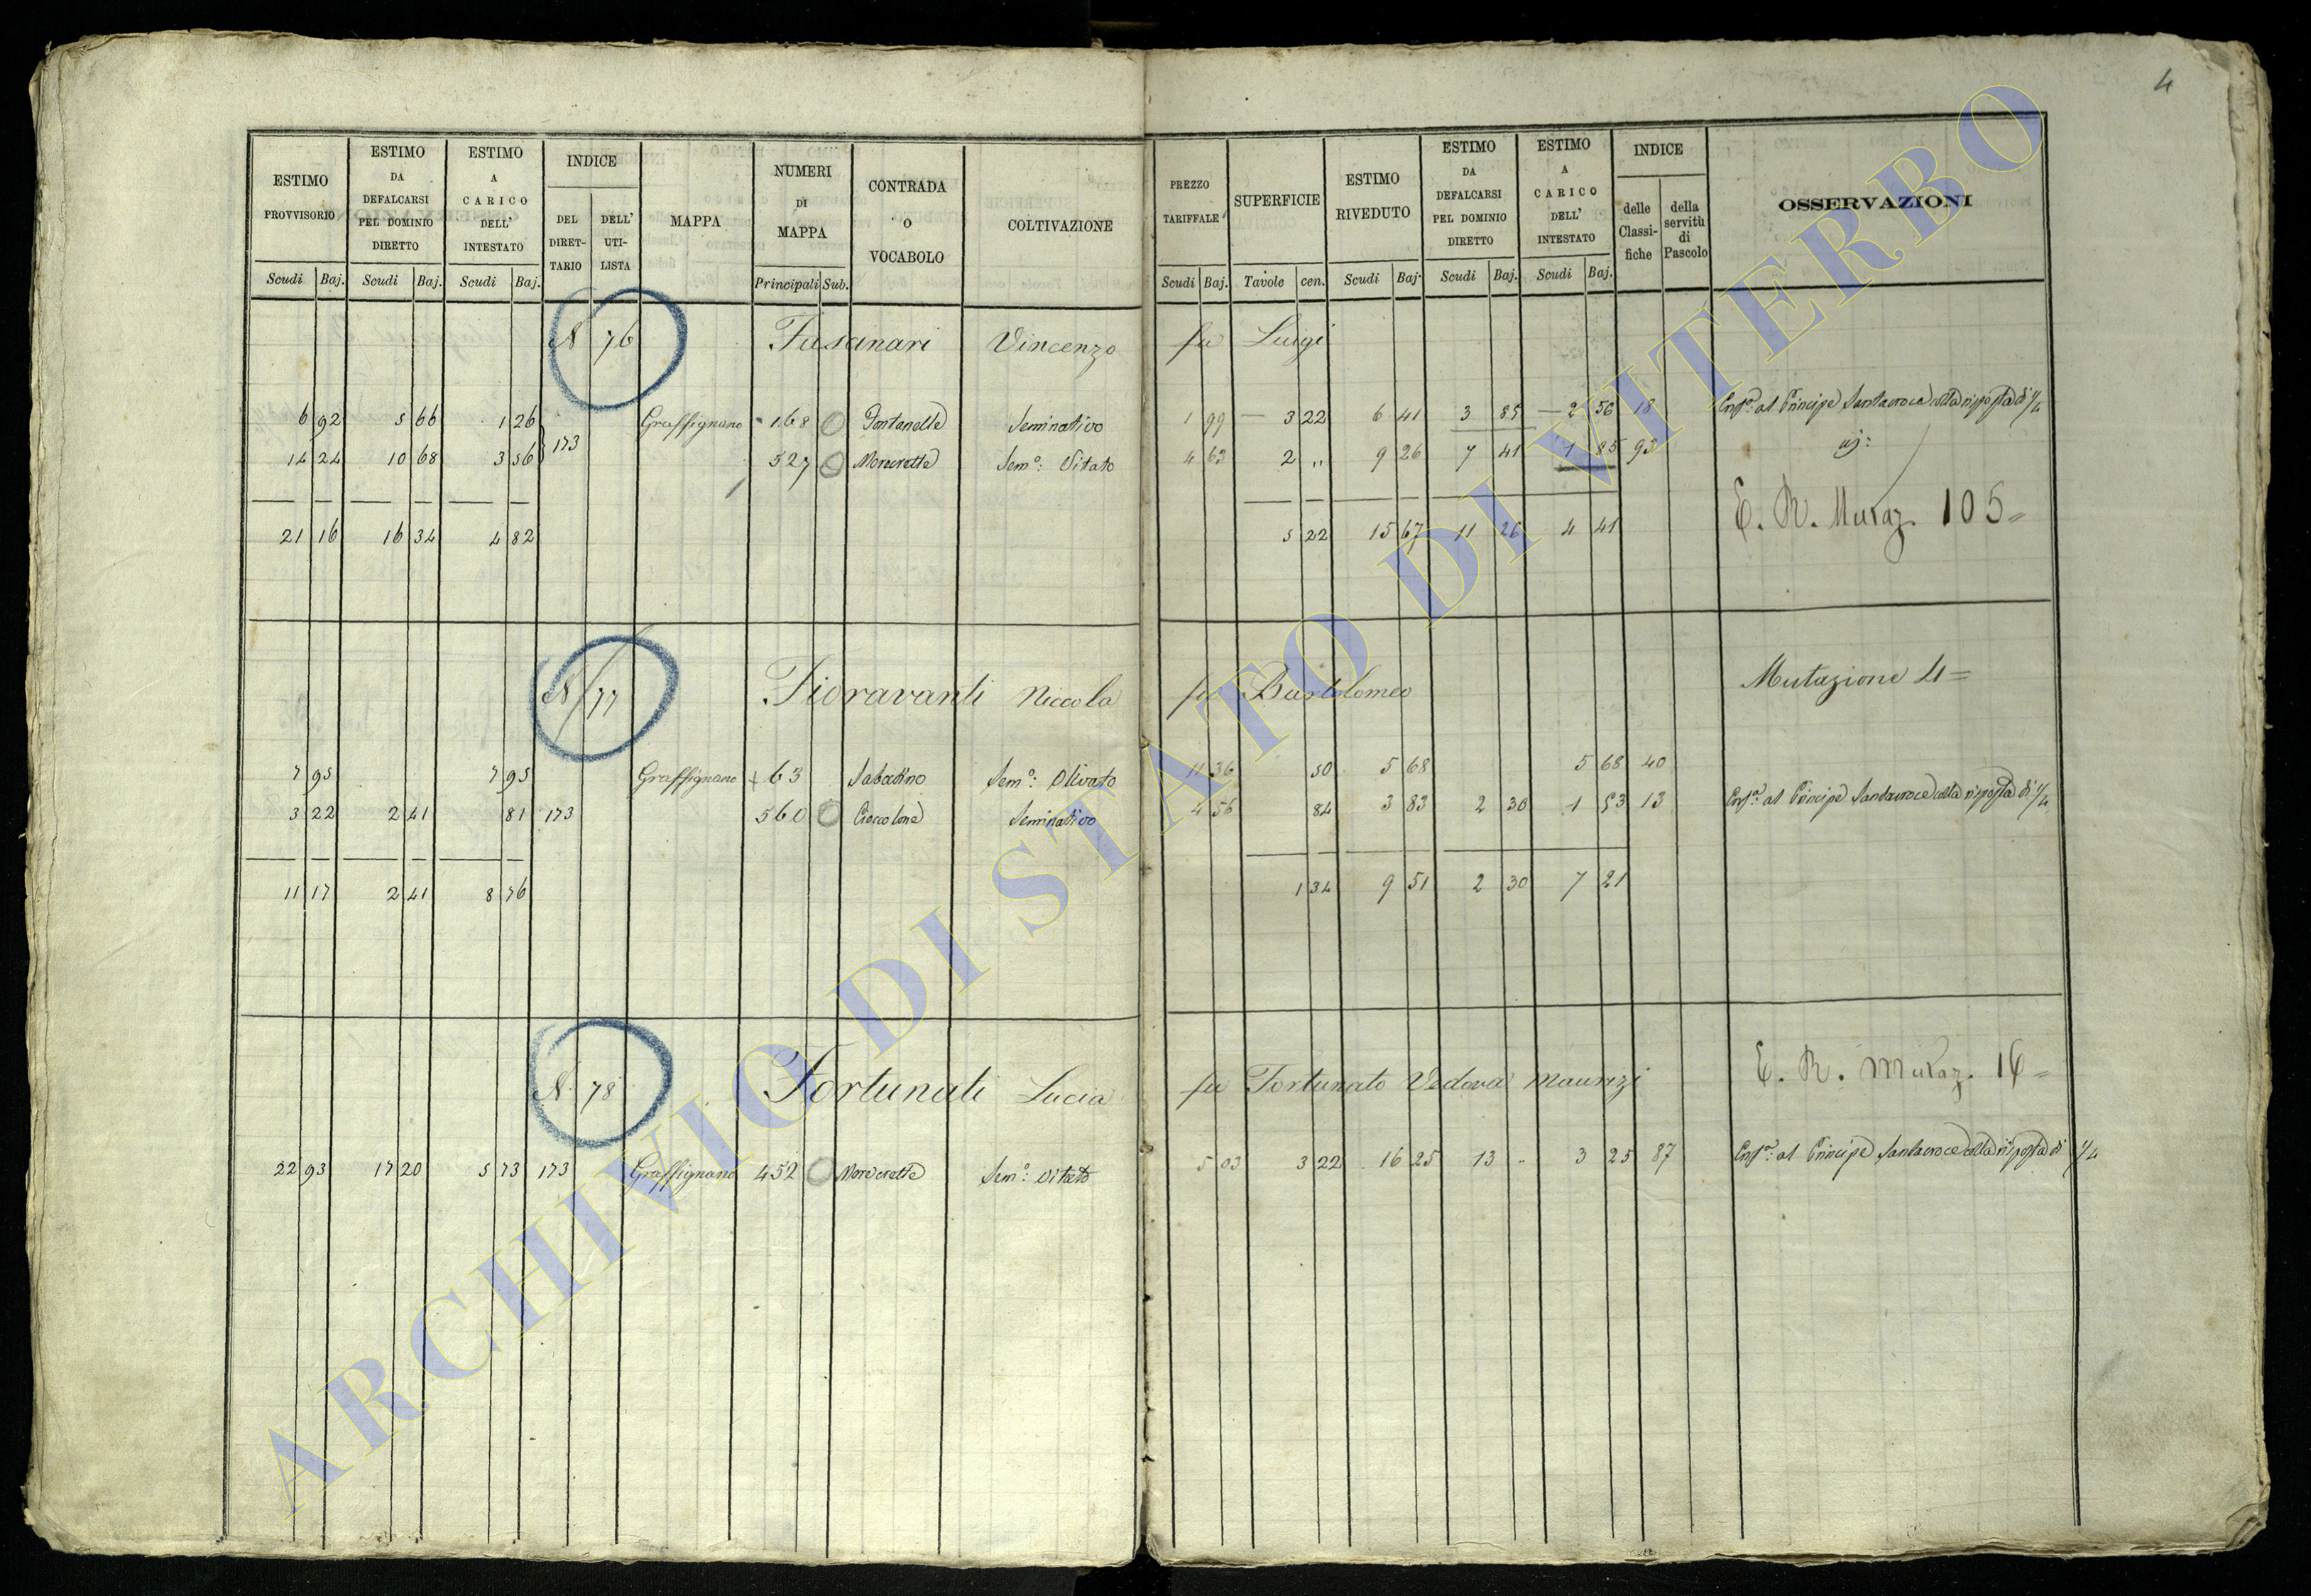 4
ESTIMO PROVVISORIO
ESTIMO DA DEFALCARSI PEL DOMINIO DIRETTO
ESTIMO A CARICO DELL' INTESTATO
INDICE
DEL DIRET-TARIO
DELL' UTI-LISTA
MAPPA
NUMERI DI MAPPA
CONTRADA O VOCABOLO
COLTIVAZIONE
PREZZO TARIFFALE
SUPERFICIE
ESTIMO RIVEDUTO
ESTIMO DA DEFALCARSI PEL DOMINIO DIRETTO
ESTIMO A CARICO DELL' INTESTATO
INDICE
delle Classi-fiche
della servitù di Pascolo
OSSERVAZIONI
Scudi Baj. Scudi Baj. Scudi Baj. Principali Sub. Scudi Baj. Tavole cen. Scudi Baj. Scudi Baj. Scudi Baj.
N 76 Fusanari Vincenzo fu Luigi
6 92 5 66 1 26 173 Graffignano 168 Fontanelle Seminativo 1 99 3 22 6 41 3 85 2 56 18 al Principe Santacroce colla risposta di 1/4
14 24 10 68 3 56 527 Morerette Sem.o: Vitato 4 63 2 " 9 26 7 41 1 85 93
21 16 16 34 4 82 5 22 15 67 11 26 4 41 E. R. Mutaz. 105=
N 77 Fioravanti Niccola fu Bartolomeo Mutazione 4=
7 95 7 95 Graffignano + 63 Sabatino Sem.o: Olivato 11 36 50 5 68 5 68 40
3 22 2 41 81 173 560 Cioccolone Seminativo 4 56 84 3 83 2 30 1 53 13 al Principe Santacroce colla risposta di 1/4
11 17 2 41 8 76 1 34 9 51 2 30 7 21
N. 78 Fortunati Lucia fu Fortunato Vedova Maurizi E. R. Mutaz. 16=
22 93 17 20 5 73 173 Graffignano 452 Morerette Sem.o: Vitato 5 03 3 22 16 25 13 - 3 25 87 al Principe Santacroce colla risposta di 1/4
ARCHIVIO DI STATO DI VITERBO